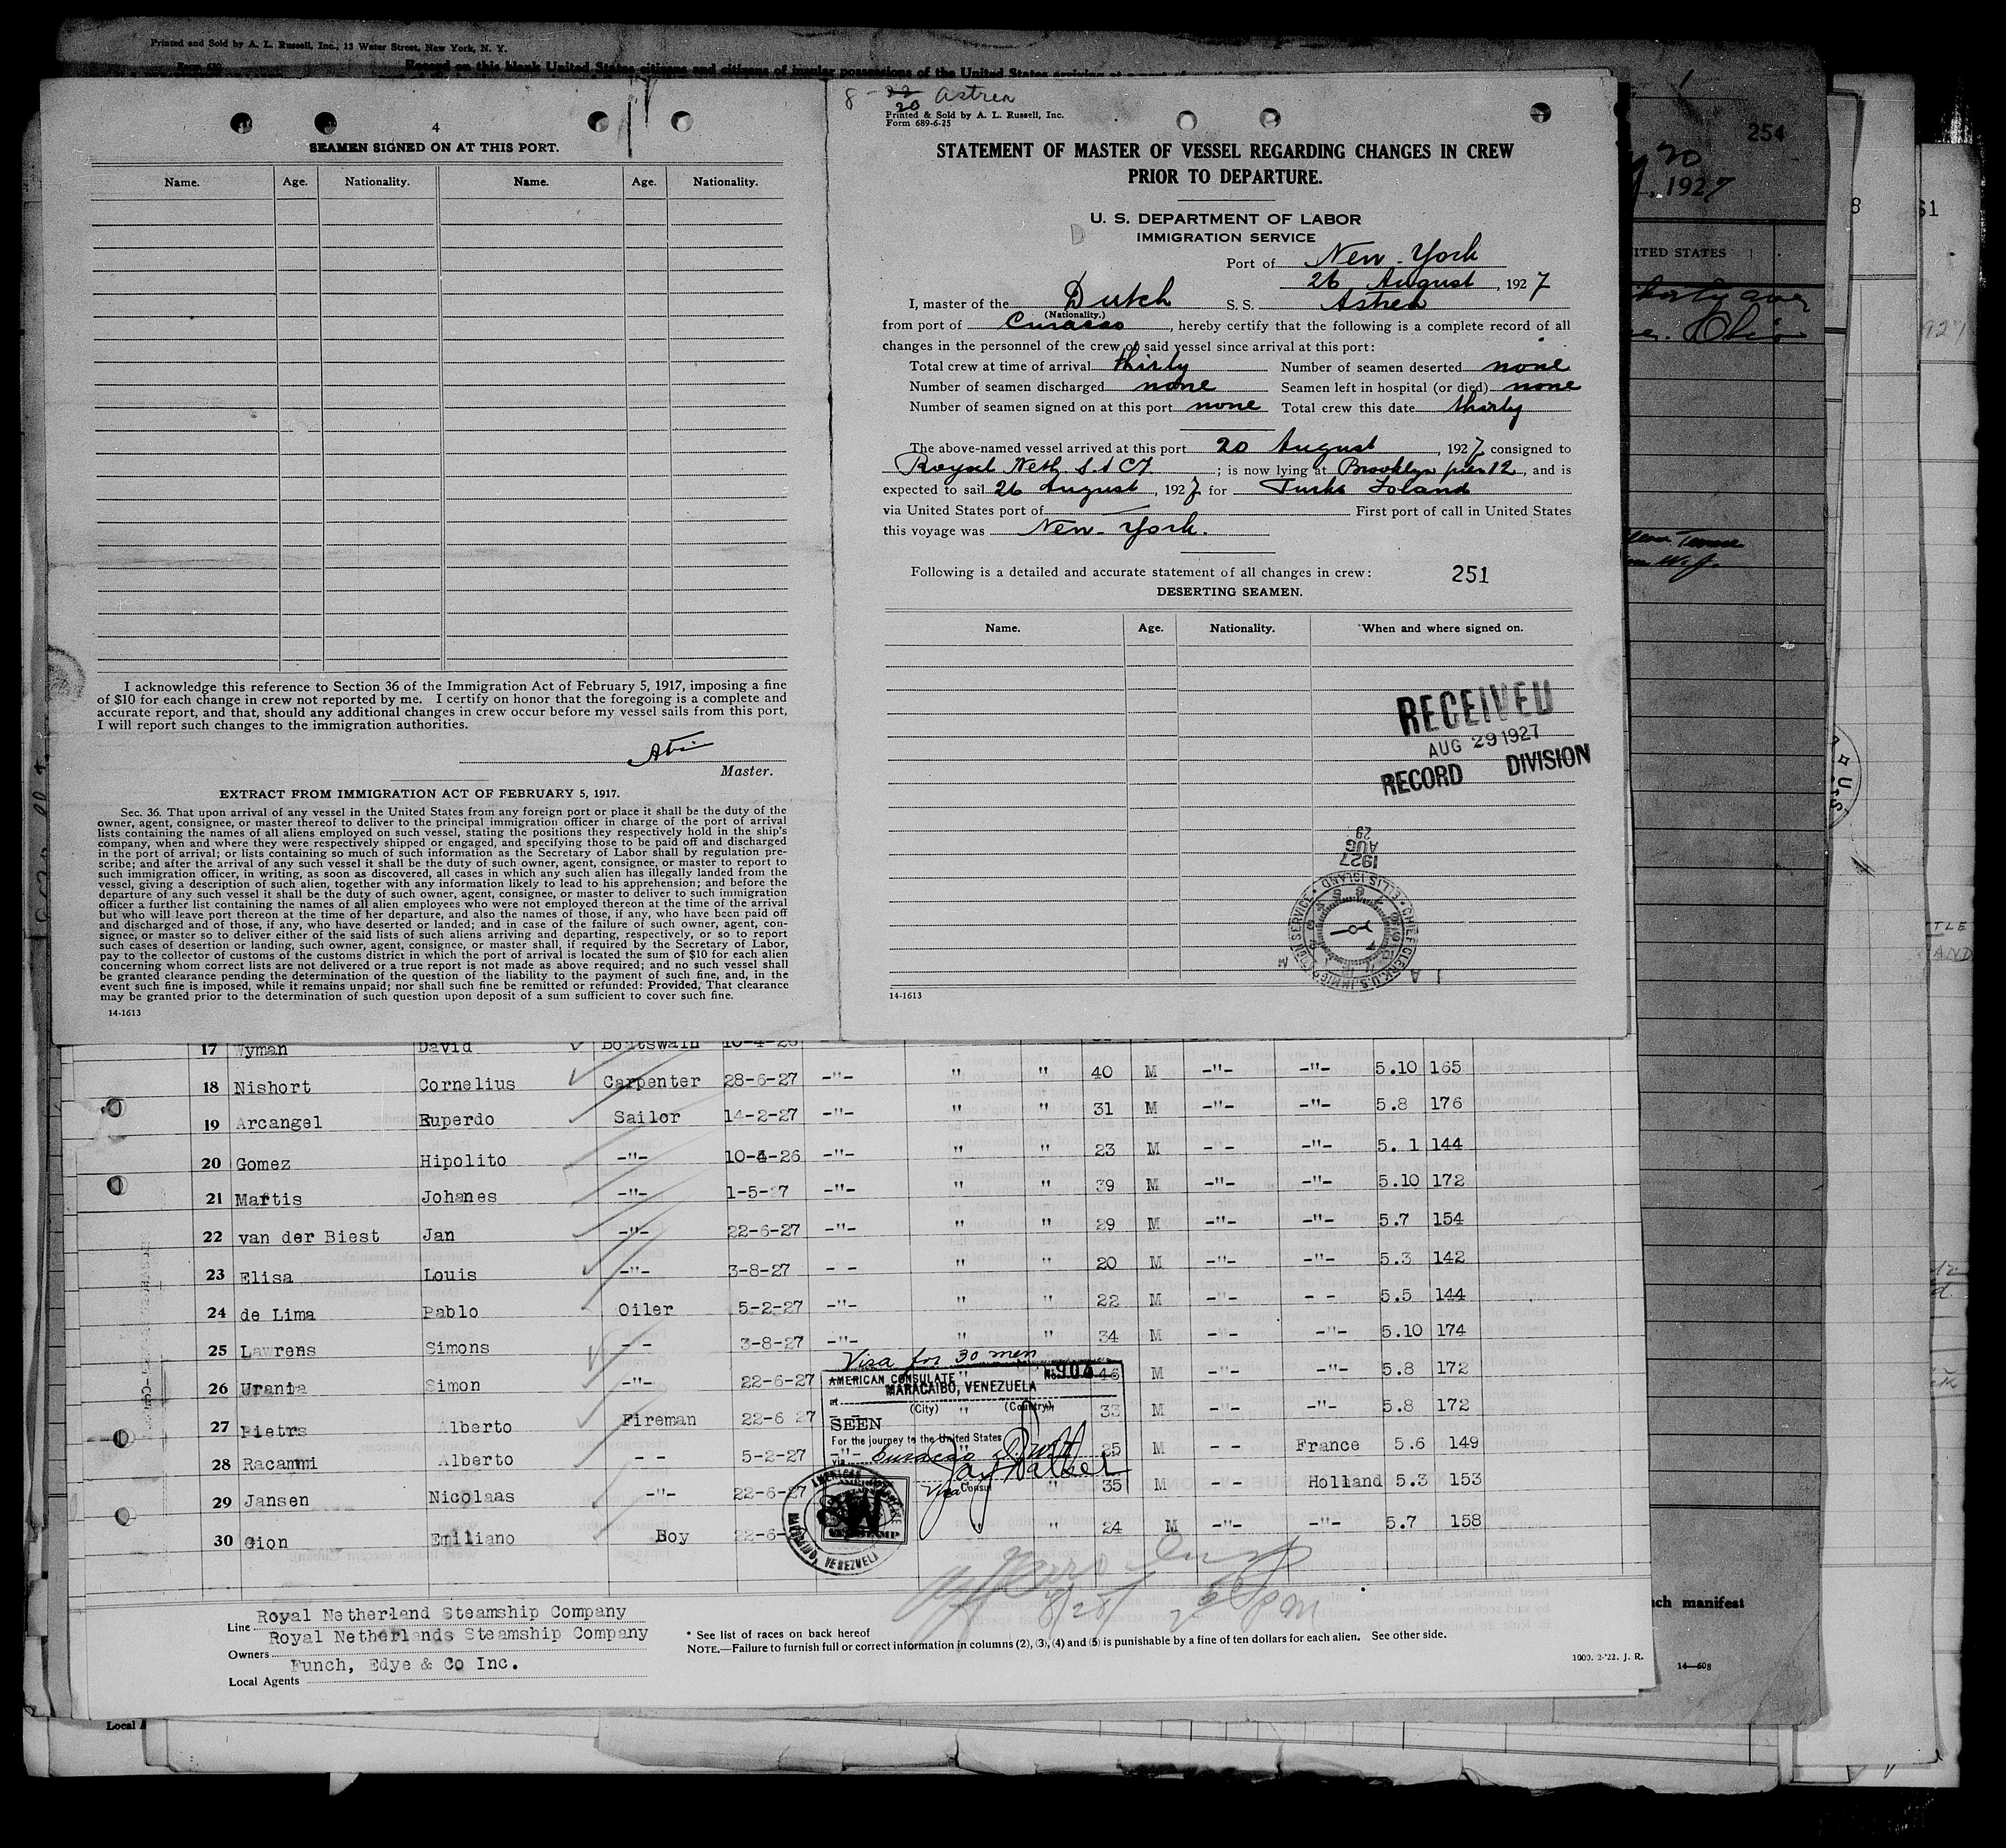 Printed and Sold by A. L. Russell, Inc., 13 Water Street, New York, N. Y.
Form 630
Record on this blank United States citizens and citizens of insular possessions of the United States arriving at a port of
4
SEAMEN SIGNED ON AT THIS PORT.
Name. Age. Nationality. Name. Age. Nationality.
I acknowledge this reference to Section 36 of the Immigration Act of February 5, 1917, imposing a fine
of $10 for each change in crew not reported by me. I certify on honor that the foregoing is a complete and
accurate report, and that, should any additional changes in crew occur before my vessel sails from this port,
I will report such changes to the immigration authorities.
Master.
EXTRACT FROM IMMIGRATION ACT OF FEBRUARY 5, 1917.
Sec. 36. That upon arrival of any vessel in the United States from any foreign port or place it shall be the duty of the
owner, agent, consignee, or master thereof to deliver to the principal immigration officer in charge of the port of arrival
lists containing the names of all aliens employed on such vessel, stating the positions they respectively hold in the ship's
company, when and where they were respectively shipped or engaged, and specifying those to be paid off and discharged
in the port of arrival; or lists containing so much of such information as the Secretary of Labor shall by regulation pre-
scribe; and after the arrival of any such vessel it shall be the duty of such owner, agent, consignee, or master to report to
such immigration officer, in writing, as soon as discovered, all cases in which any such alien has illegally landed from the
vessel, giving a description of such alien, together with any information likely to lead to his apprehension; and before the
departure of any such vessel it shall be the duty of such owner, agent, consignee, or master to deliver to such immigration
officer a further list containing the names of all alien employees who were not employed thereon at the time of the arrival
but who will leave port thereon at the time of her departure, and also the names of those, if any, who have been paid off
and discharged and of those, if any, who have deserted or landed; and in case of the failure of such owner, agent, con-
signee, or master so to deliver either of the said lists of such aliens arriving and departing, respectively, or so to report
such cases of desertion or landing, such owner, agent, consignee, or master shall, if required by the Secretary of Labor,
pay to the collector of customs of the customs district in which the port of arrival is located the sum of $10 for each alien
concerning whom correct lists are not delivered or a true report is not made as above required; and no such vessel shall
be granted clearance pending the determination of the question of the liability to the payment of such fine, and, in the
event such fine is imposed, while it remains unpaid; nor shall such fine be remitted or refunded: Provided, That clearance
may be granted prior to the determination of such question upon deposit of a sum sufficient to cover such fine.
14-1613
8 - 22 Astrea
20
Printed & Sold by A. L. Russell, Inc.
Form 689-6-25
STATEMENT OF MASTER OF VESSEL REGARDING CHANGES IN CREW
PRIOR TO DEPARTURE.
U. S. DEPARTMENT OF LABOR
IMMIGRATION SERVICE
Port of New-York
26 August, 1927
I, master of the Dutch S. S. Astrea
(Nationality.)
from port of Curacao, hereby certify that the following is a complete record of all
changes in the personnel of the crew of said vessel since arrival at this port:
Total crew at time of arrival thirty Number of seamen deserted none
Number of seamen discharged none Seamen left in hospital (or died) none
Number of seamen signed on at this port none Total crew this date thirty
The above-named vessel arrived at this port 20 August, 1927 consigned to
Royal Neth. S. S Cy; is now lying at Brooklyn pier 12, and is
expected to sail 26 August, 1927 for Turks Island
via United States port of — First port of call in United States
this voyage was New-York.
Following is a detailed and accurate statement of all changes in crew: 251
DESERTING SEAMEN.
Name. Age. Nationality. When and where signed on.
RECEIVED
AUG 29 1927
RECORD DIVISION
29
AUG
1927
CHIEF CLERK, U.S. IMMIGRATION SERVICE • ELLIS ISLAND
14-1613
1
254
20
, 1927
ITED STATES
Ohio
17 Wyman David Boatswain 10-4-26
18 Nishort Cornelius Carpenter 28-6-27 -"- " " 40 M -"- -"- 5.10 165
19 Arcangel Ruperdo Sailor 14-2-27 -"- " " 31 M -"- -"- 5.8 176
20 Gomez Hipolito -"- 10-4-26 -"- " " 23 M - - -"- 5. 1 144
21 Martis Johanes -"- 1-5-27 -"- " " 39 M -"- -"- 5.10 172
22 van der Biest Jan -"- 22-6-27 -"- " " 29 M -"- -"- 5.7 154
23 Elisa Louis -"- 3-8-27 - - " " 20 M -"- -"- 5.3 142
24 de Lima Pablo Oiler 5-2-27 -"- " " 22 M -"- - - 5.5 144
25 Lawrens Simons - - 3-8-27 -"- " " 34 M -"- -"- 5.10 174
26 Urania Simon -"- 22-6-27 " 46 M -"- -"- 5.8 172
27 Pietrs Alberto Fireman 22-6 27 " 33 M -"- -"- 5.8 172
28 Racammi Alberto - - 5-2-27 -"- " 25 M - - France 5.6 149
29 Jansen Nicolaas -"- 22-6-27 " 35 M -"- Holland 5.3 153
30 Gion Emiliano Boy 22-6- " " 24 M -"- -"- 5.7 158
Visa for 30 men
AMERICAN CONSULATE No. 904
at MARACAIBO, VENEZUELA
(City) (Country)
SEEN
For the journey to the United States
via Curacao
Jay Walker
Vice Consul
MARACAIBO, VENEZUELA
8/28/
Line Royal Netherland Steamship Company
Owners Royal Netherlands Steamship Company
Local Agents Funch, Edye & Co Inc.
* See list of races on back hereof
NOTE.—Failure to furnish full or correct information in columns (2), (3), (4) and (5) is punishable by a fine of ten dollars for each alien. See other side.
1000. 2-'22. J. R.
uch manifest
14—608
Local A
8
51
927
TLE
AND